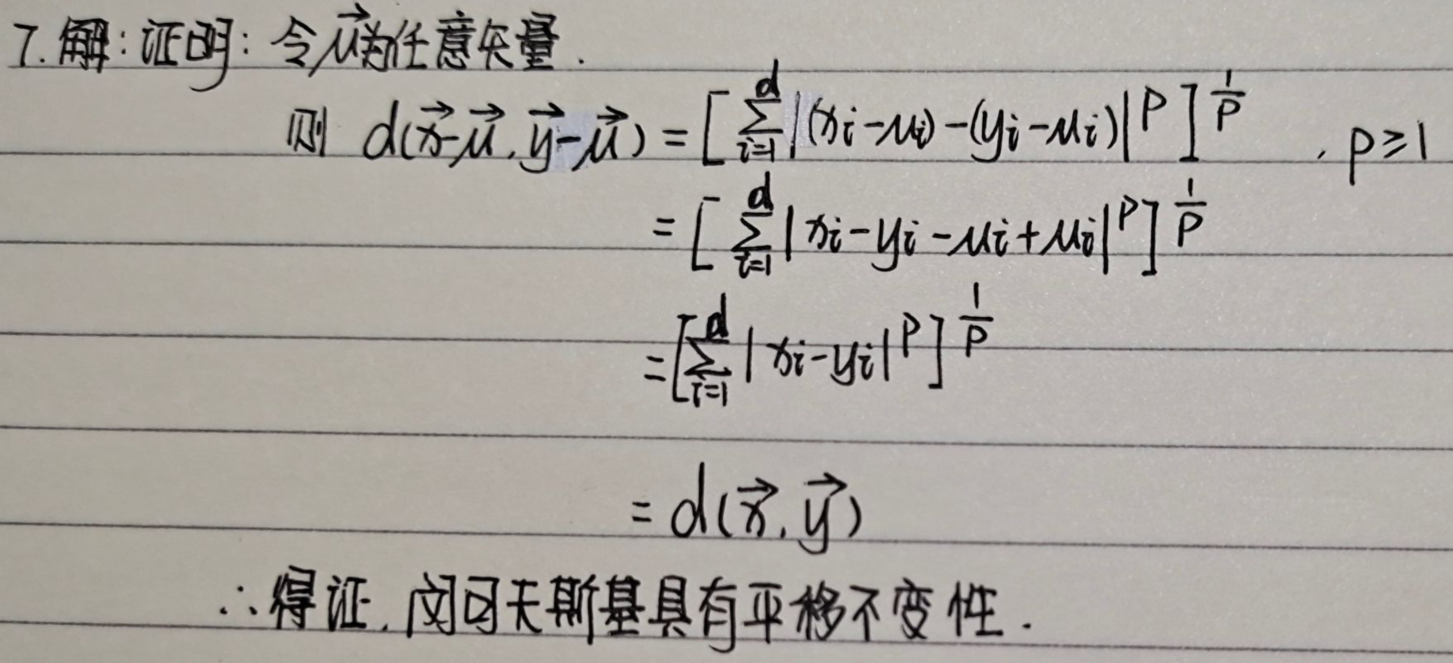 7. 解: 证明: 令 \vec{μ}为任意矢量.
则 d(\vec{x}-\vec{μ}, \vec{y}-\vec{μ}) = [\sum_{i=1}^{d} |(x_i-μ_i)-(y_i-μ_i)|^p]^{\frac{1}{p}} , p≥1
= [\sum_{i=1}^{d} |x_i-y_i-μ_i+μ_i|^p]^{\frac{1}{p}}
= [\sum_{i=1}^{d} |x_i-y_i|^p]^{\frac{1}{p}}
= d(\vec{x}, \vec{y})
∴得证, 闵可夫斯基具有平移不变性.